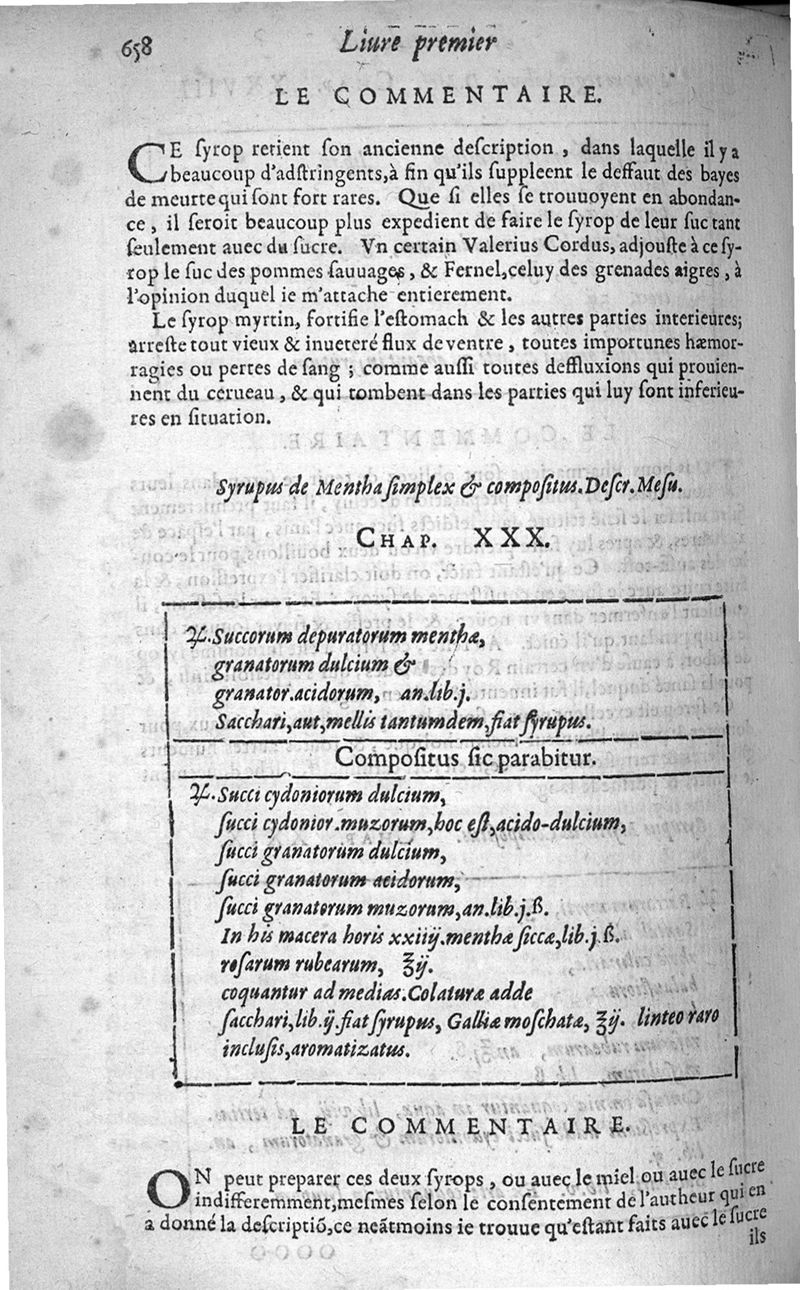 658
Liure premier
LE COMMENTAIRE.
CE ſyrop retient ſon ancienne deſcription , dans laquelle il y a
beaucoup d'adſtringents,à fin qu'ils ſuppleent le deffaut des bayes
de meurte qui ſont fort rares. Que ſi elles ſe trouuoyent en abondan-
ce , il ſeroit beaucoup plus expedient de faire le ſyrop de leur ſuc tant
ſeulement auec du ſucre. Vn certain Valerius Cordus, adjouſte à ce ſy-
rop le ſuc des pommes ſauuages, & Fernel,celuy des grenades aigres , à
l'opinion duquel ie m'attache entierement.
Le ſyrop myrtin, fortifie l'eſtomach & les autres parties interieures;
arreſte tout vieux & inueteré flux de ventre , toutes importunes hæmor-
ragies ou pertes de ſang ; comme auſſi toutes deffluxions qui prouien-
nent du cerueau , & qui tombent dans les parties qui luy ſont inferieu-
res en ſituation.
Syrupus de Mentha ſimplex & compoſitus. Deſcr. Meſu.
CHAP. XXX.
♃. Succorum depuratorum menthæ,
granatorum dulcium &
granator. acidorum, an. lib. j.
Sacchari,aut,mellis tantumdem,fiat ſyrupus.
Compoſitus ſic parabitur.
♃. Succi cydoniorum dulcium,
ſucci cydonior. muzorum,hoc eſt,acido-dulcium,
ſucci granatorum dulcium,
ſucci granatorum acidorum,
ſucci granatorum muzorum,an. lib. j. ß.
In his macera horis xxiiij. menthæ ſiccæ,lib. j. ß.
roſarum rubearum, ℥ij.
coquantur ad medias. Colaturæ adde
ſacchari,lib. ij. fiat ſyrupus, Galliæ moſchatæ, ʒij. linteo raro
incluſis,aromatizatus.
LE COMMENTAIRE.
ON peut preparer ces deux ſyrops , ou auec le miel ou auec le ſucre
indifferemment,meſmes ſelon le conſentement de l'autheur qui en
a donné la deſcriptiõ,ce neãtmoins ie trouue qu'eſtant faits auec le ſucre
ils